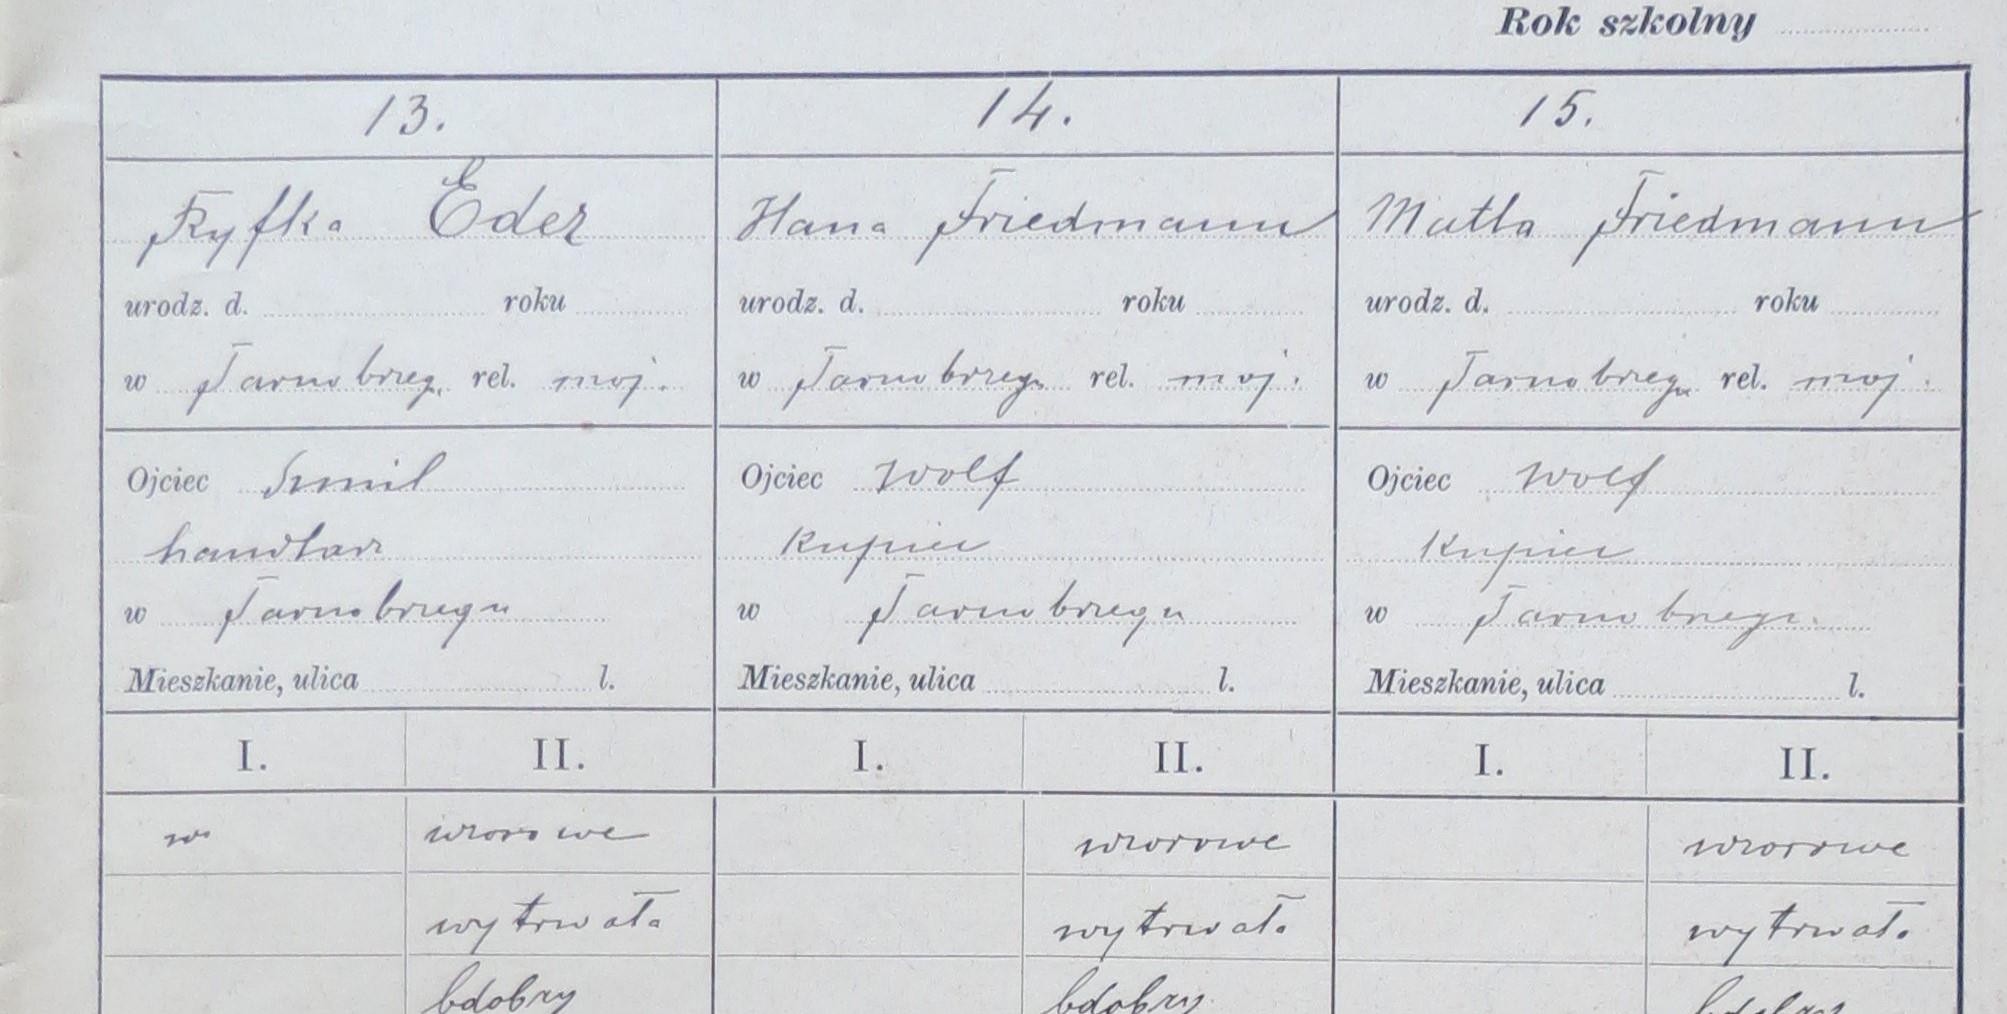 Rok szkolny
13. 14. 15.
Ryfka Eder Hana Friedmann Matla Friedmann
urodz. d. roku urodz. d. roku urodz. d. roku
w Tarnobrzegu rel. mojż. w Tarnobrzegu rel. mojż. w Tarnobrzegu rel. mojż.
Ojciec Szmil Ojciec Wolf Ojciec Wolf
handlarz kupiec kupiec
w Tarnobrzegu w Tarnobrzegu w Tarnobrzegu
Mieszkanie, ulica l. Mieszkanie, ulica l. Mieszkanie, ulica l.
I. II. I. II. I. II.
wzorowe wzorowe wzorowe
wytrwała wytrwała wytrwała
bdobry bdobry bdobry